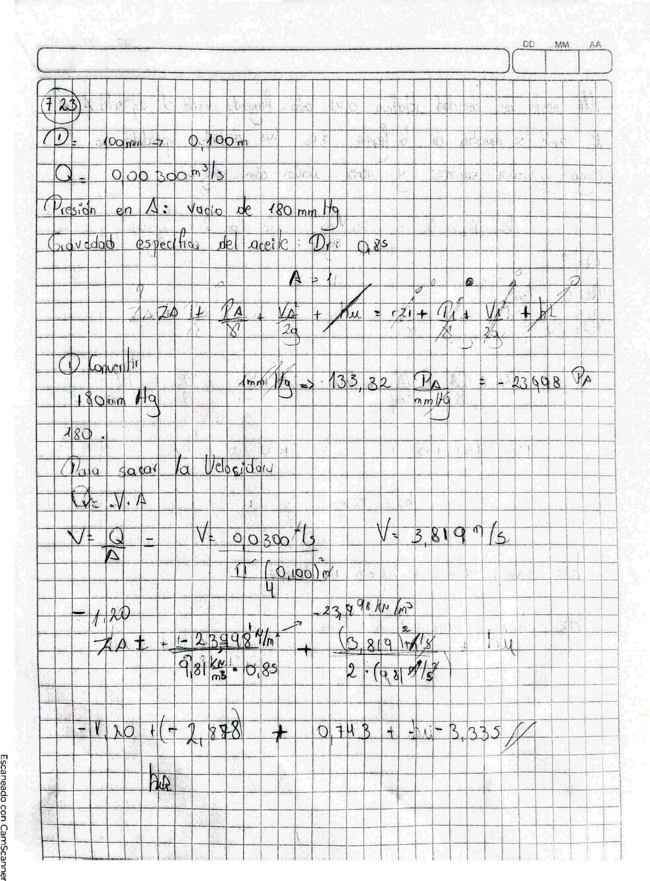 DD MM AA
7 23
D = 100mm => 0,100m
Q = 0,00300 m³/s
Presión en A: vacio de 180 mm Hg
Gravedad especifica del aceite: Dr: 0,85
A = 1
ZA + PA/γ + VA²/2g + hu = z1 + P1/γ + V1²/2g +
① Convertir
180mm Hg
1mm Hg => 133,32 PA/mmHg = - 23998 PA
180.
Para sacar la Velosidad
Q = V · A
V = Q/A = V = 0,0300 /s / π/4 (0,100)² m V = 3,819 m/s
- 1,20 -23,998 KN/m³
ZA ± (-23,998 N/m² / 9,81 KN/m³ · 0,85) + (3,819)² m/s / 2 · (9,81 m/s²)
- 1,20 + (- 2,878) + 0,743 + - 3,335 //
Escaneado con CamScanner